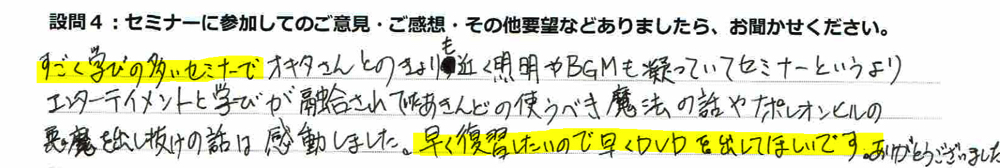 設問４：セミナーに参加してのご意見・ご感想・その他要望などありましたら、お聞かせください。
すごく学びの多いセミナーでオキタさんとのきょりも近く照明やBGMも凝っていてセミナーというより
エンターテイメントと学びが融合されてあきんどの使うべき魔法の話やナポレオンヒルの
悪魔を出し抜けの話は感動しました。早く復習したいので早くDVDを出してほしいです。ありがとうございました